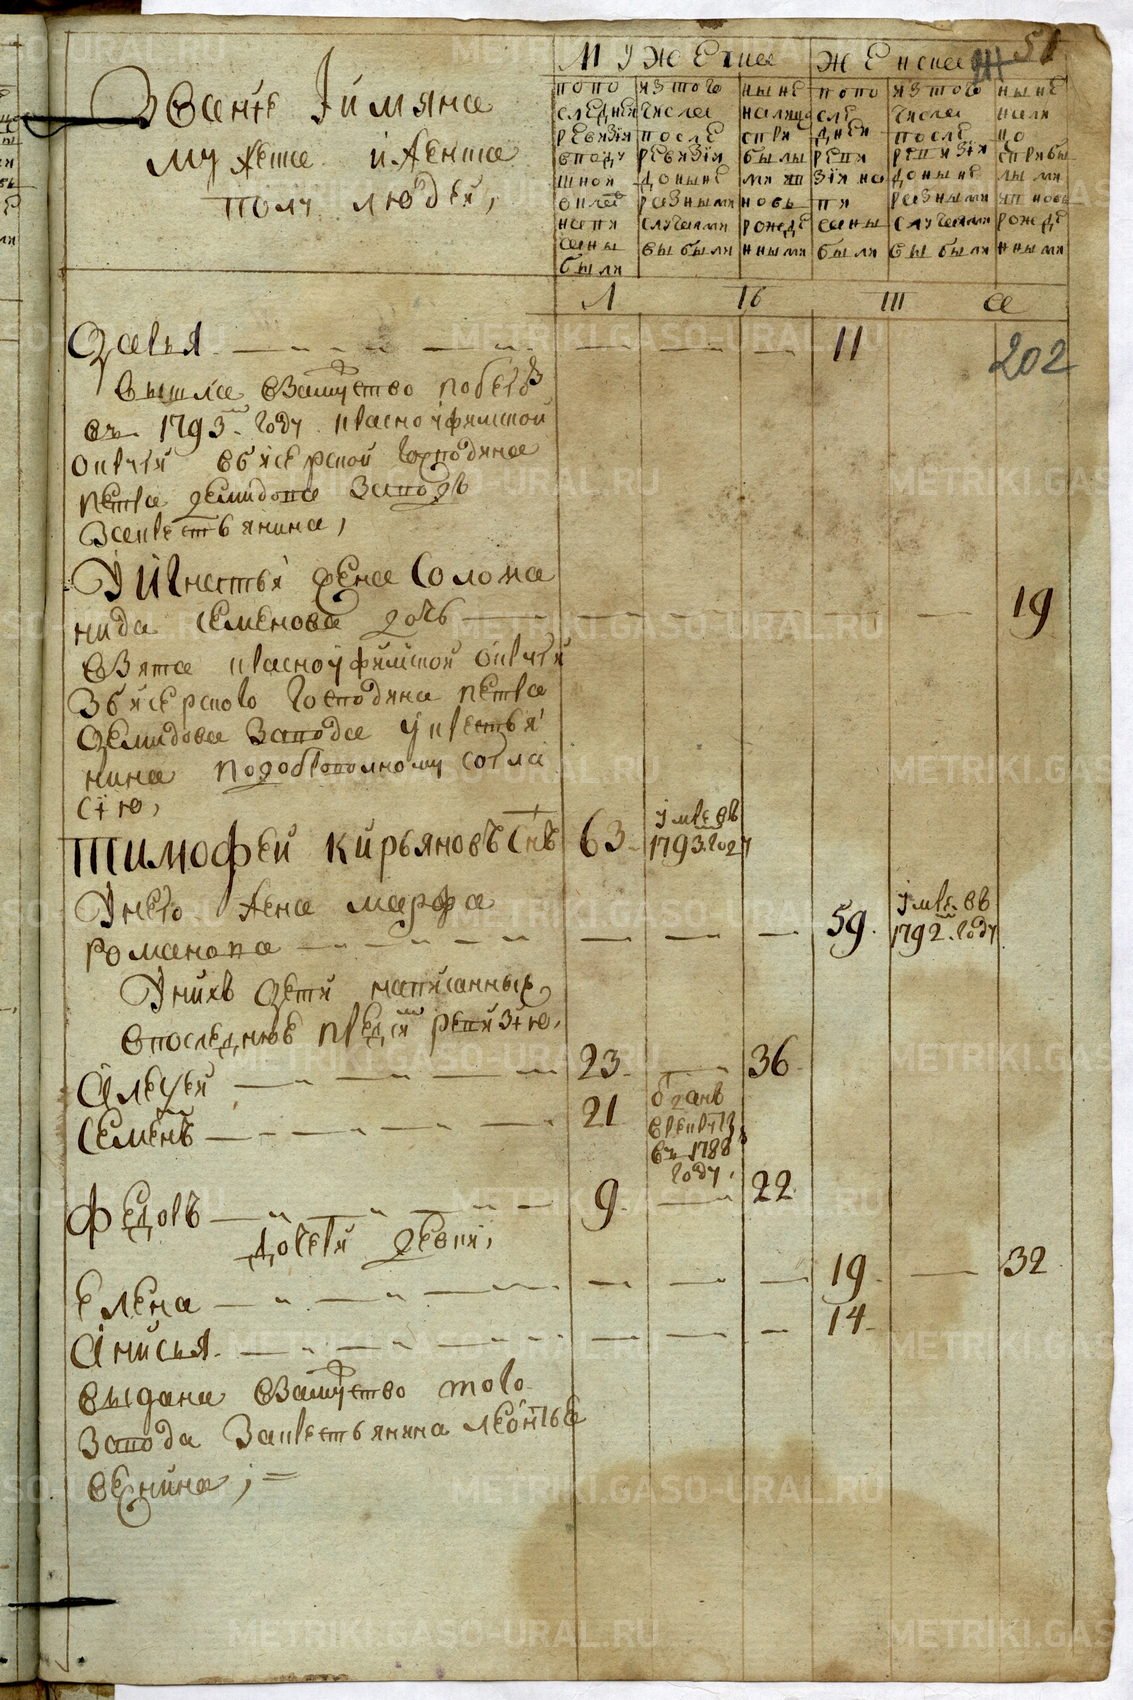 51
202
Званїе Їимяна
мужеска иженска
полу людей,
мужеска
женска
попо
следней
ревизiи
вподу
шной
окла
написаны
были
изтого
числа
после
ревизiи
доныне
разными
случаями
выбыли
ныне
налицо
спри
былы
ми вновь
рожде
нными
попо
сле
дней
реви
зiи на
пи
саны
были
изтого
числа
после
ревизiи
доныне
разными
случаями
выбыли
ныне
нали
цо
сприбы
лыми
вновь
рожде
нными
Дарья 11
вышла взамужство
въ 1793м году красноуфимской
округи вбисерской господина
петра демидова заводъ
закрестьянина,
Уигнатья жена Соломо
нида семенова дочь 19
взята красноуфимской округи
збисерского господина петра
демидова завода укрестья
нина подобровольному согла
сiю,
Тимофей кирьяновъ Снъ 63 умре въ 1793м году
Унего жена марфа
романова 59 умре въ 1792м году
Унихъ дети написанныя
впоследнюю предсiю ревизiю,
Алексей 23 36
Семенъ 21 отданъ
врекруты
въ 1788
году,
Федоръ 9 22
дочери девки,
Елена 19 32
Анисья 14
выдана взамужство того
завода Закрестьянина леонтья
венина;
METRIKI.GASO-URAL.RU